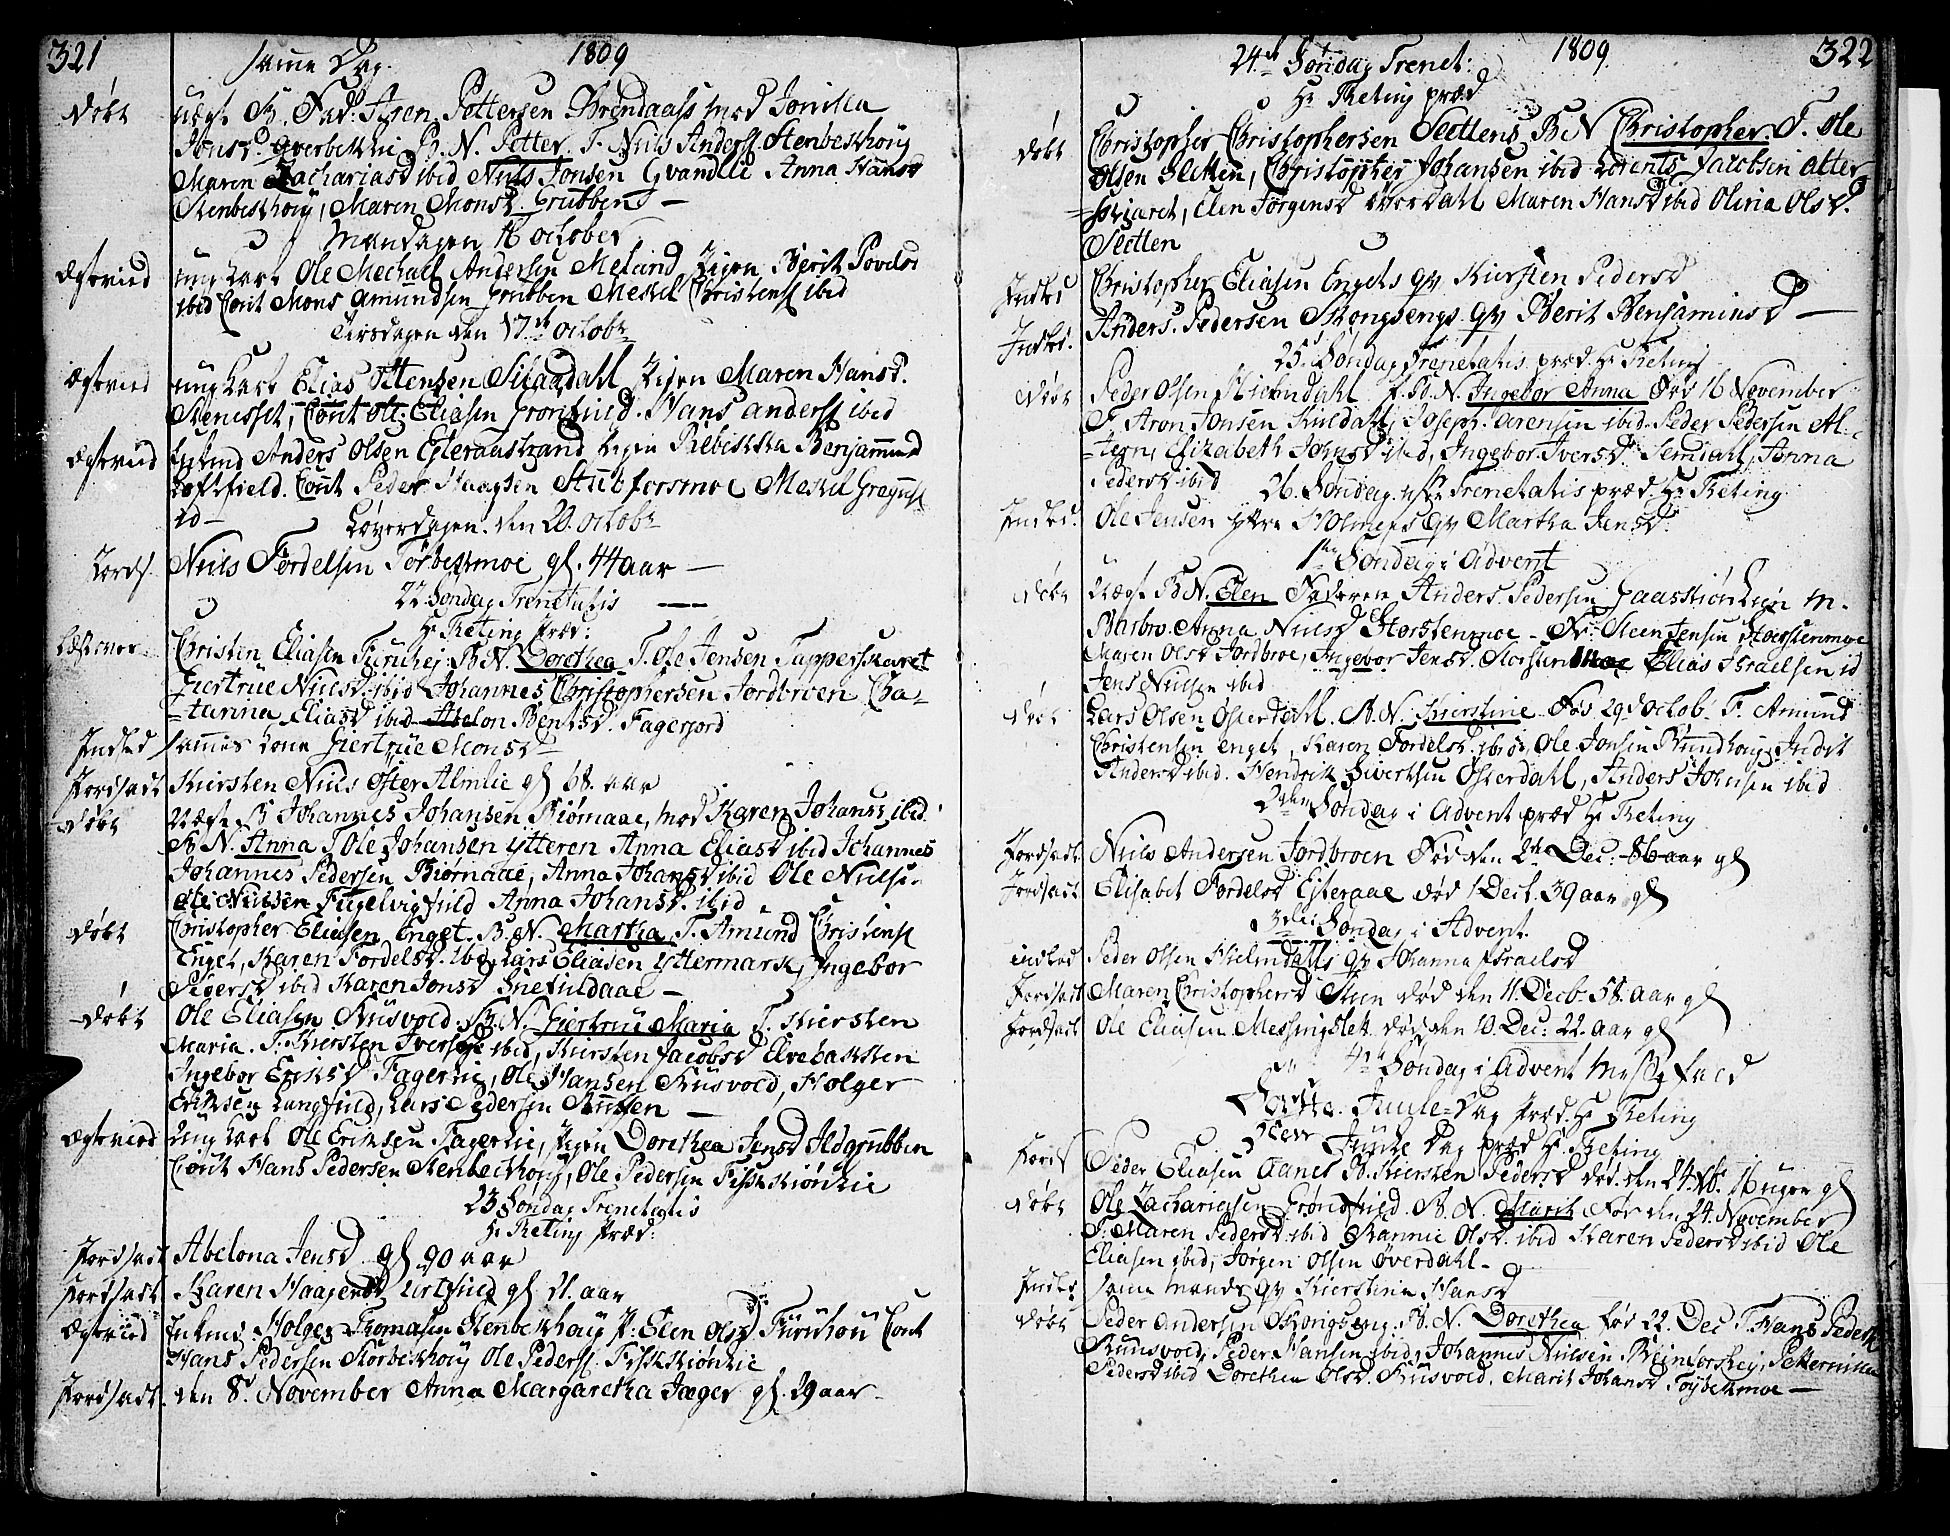 321
samme Dag.
1809
Døbt
uægt B. Fad. Iver Pettersen Brendaass med Jonilla
Jonsd. Qverbekkli B. N. Petter. F. Niels Anders. Stenbekhøig
Maren Zachariasd ibid Niels Jonsen Qvandlie Anna Hansd
Stenbekhøig, Maren Monsd Grubben —
Mandagen 16 October
Ægtevied
ung Karl Ole Mechael Andersen Meland Pigen Berit Povelsd
ibid Cout Mons Amundsen Grubben Mechel Christens ibid
Tirsdagen den 17de Octobr
Ægtevied
ung Karl Elias Ottensen Silaadahl Pigen Maren Hansd.
Stenisset, Cout Ott Eliasen Grønfield. Hans Anders ibid
Ægtevied
Anders Olsen Ejteraastrand Pigen Rebekka Benjamind
Loftfield. Cout Peder Haagsen Stubforsmoe Mechel Gregus
id —
Løverdagen den 20. Octobr
Jords.
Niels Fordelsen Tørbekmoe gl. 44 aar —
22 Søndag Trenetatis
Hr Reting Præd:
Christen Eliasen Furuhej: B. N. Dorethea F. Ole Jensen Tapperskaret
Giertrue Nielsd. ibid Johannes Christophersen Jordbroen Cha-
tarina Eliasd ibid Abelon Bentsd. Fagerjord
Indled
sammes kone Giertrue Monsd
Jordfadt
Kiersten Niels Øster Almlie gl 68. aar
Døbt
Uægt B Johannes Johansen Biørnaae, med Karen Johansd ibid
B. N. Anna F Ole Johansen ytteren Anna Eliasd ibid Johannes
Johannes Pedersen Biørnaae, Anna Johansd ibid Ole Niels-
Ole Nielsen Fuglevigfield Anna Johansd. ibid
Døbt
Christopher Eliasen Enget. B. N. Martha, F. Amund Christens
Enget, Karen Fordelsd. ibid Lars Eliasen Yttermark, Ingebor
Pedersd ibid Karen Jonsd Snefieldaae —
Døbt
Ole Eliasen Rusvold B. N. Giertrue Maria F. Kiersten
Maria. F. Kiersten Iversd ibid, Kiersten Jacobsd Elvebakken
Ingebor Eriksd Fagerlie, Ole Hansen Rusvold, Holger
Eriksen Langfield, Lars Pedersen —
Ægtevied
Ung Karl Ole Eriksen Fagerlie, Pigen Dorethea Jensd Ildgrubben
Cout Hans Pedersen Stenbekhøig, Ole Pedersen Fiskkiønlie
23 Søndag Trenetatis
Hr Reting Præd:
Jordfadt
Abelona Jensd gl 90 aar
Jordfadt
Karen Haagensd Urtfield gl 21. aar
Ægtevied
Holger Thomasen Stenbekhøig P. Elen Olsd Furuhou Cout
Hans Pedersen Storbekhøig Ole Peders. Fiskkiønlie
Jordfadt
den 8d November Anna Margaretha Jæger gl. 29 aar —
24de Søndag Trenet:
1809
322
Hr Reting præd
Døbt
Christopher Christophersen Slettens B N Christopher. F. Ole
Olsen Sletten, Christopher Johansen ibid Lorents Jacobsen Alter
Elen Jørgensd Øverdahl Maren Hansd ibid Olina Olsd.
Sletten
Indled
Christopher Eliasen Engets qv Kiersten Pedersd
Indled.
Anders Pedersen Skongsengs qv Berit Benjaminsd —
25 Søndag Trenetatis præd Hr Reting
Døbt
Peder Olsen Hielmdahl B. N. Ingebor Anna Fød 16 November
F. Aron Jonsen Kieldahl, Joseph Arensen ibid. Peder Pedersen Al-
tern, Elizabeth Johnsd ibid, Ingebor Iversd Semdahl, Anna
Pedersd ibid
26. Søndag efter Trenetatis præd. Hr Reting
Indled.
Ole Jensen ytre Holmens qv Martha Jensd
1ste Søndag i Advent
Døbt
Uægt B. N. Elen Faderen Anders Pedersen m.
Barbro Anna Nielsd Storstenmoe — F. Steen Jensen Storstenmoe
Maren Olsd Jordbroe, Ingebor Jensd. Storstenmoe Elias Israelsen id
Jens Nielsen ibid
Døbt
Lars Olsen Østerdahl. B. N. Kierstine Fød 29d Octob F. Amund
Christensen Enget, Karen Fordelsd. ibid, Ole Jonsen Brundhoug, Indet
Andersd ibid. Hendrik Sivertsen Østerdahl, Anders Johnsen ibid
2den Søndag i Advent præd Hr Reting
Jordfadt
Niels Andersen Jordbroen Død den 2de Dec: 86 aar gl
Jordfadt
Elisabet Fordelsd Ejteraae død 1 Dect. 39 aar gl
3die Søndag i Advent.
Indled
Peder Olsen Hielmdahls qv Johanna Israelsd
Jordfadt
Maren Christophersd Steen død den 11. Decb. 58. aar gl
Jordfadt
Ole Eliasen Messingslet. død den 10. Dec: 22. aar gl
4de Søndag i Advent Messefald
Juule-Dag Præd. Hr Reting
Juule Dag præd Hr Reting
Jords
Peder Eliasen Aanes B. Kiersten Pedersd død. den 24. 16 uger gl
Døbt
Ole Zachariasen Grøndfield. B. N. Marit Fød den 24. November
F. Maren Pedersd ibid Rannie Olsd. ibid Karen Pedersd ibid Ole
Eliasen ibid, Jørgen Olsen Øverdahl —
Indled
samme mands qv Kierstina Hansd
Døbt
Peder Andersen Skongseng. B. N. Dorethea fød 22. Dec F. Hans Peders
Rusvold, Peder Hansen ibid, Johannes Nielsen Reinforshej, Petternilla
Pedersd ibid Dorethea Olsd. Rusvold. Marit Johansd Tøybekmoe —